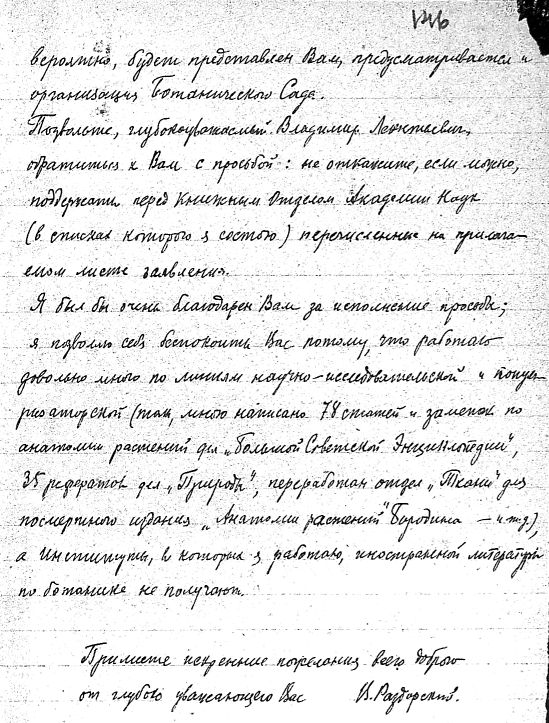 126
вероятно, будет представлен Вам, предусматривается и
организация Ботанического Сада.
Позвольте, глубокоуважаемый Владимир Леонтьевич,
обратиться к Вам с просьбой: не откажите, если можно,
поддержать перед Книжным Отделом Академии Наук
(в списках которого я состою) перечисленные на прилага-
емом листе заявления.
Я был бы очень благодарен Вам за исполнение просьбы;
я позволю себе беспокоить Вас потому, что работаю
довольно много по линиям научно-исследовательской и
(так, мною написано 78 статей и заметок по
анатомии растений для „Большой Советской Энциклопедии",
35 рефератов для „Природы", переработан отдел „Ткани" для
посмертного издания „Анатомии растений" Бородина — и т.д.),
а Институты, в которых я работаю, иностранной литературы
по ботанике не получают.
Примите искренние пожелания всего доброго
от глубоко уважающего Вас В. Раздорский.